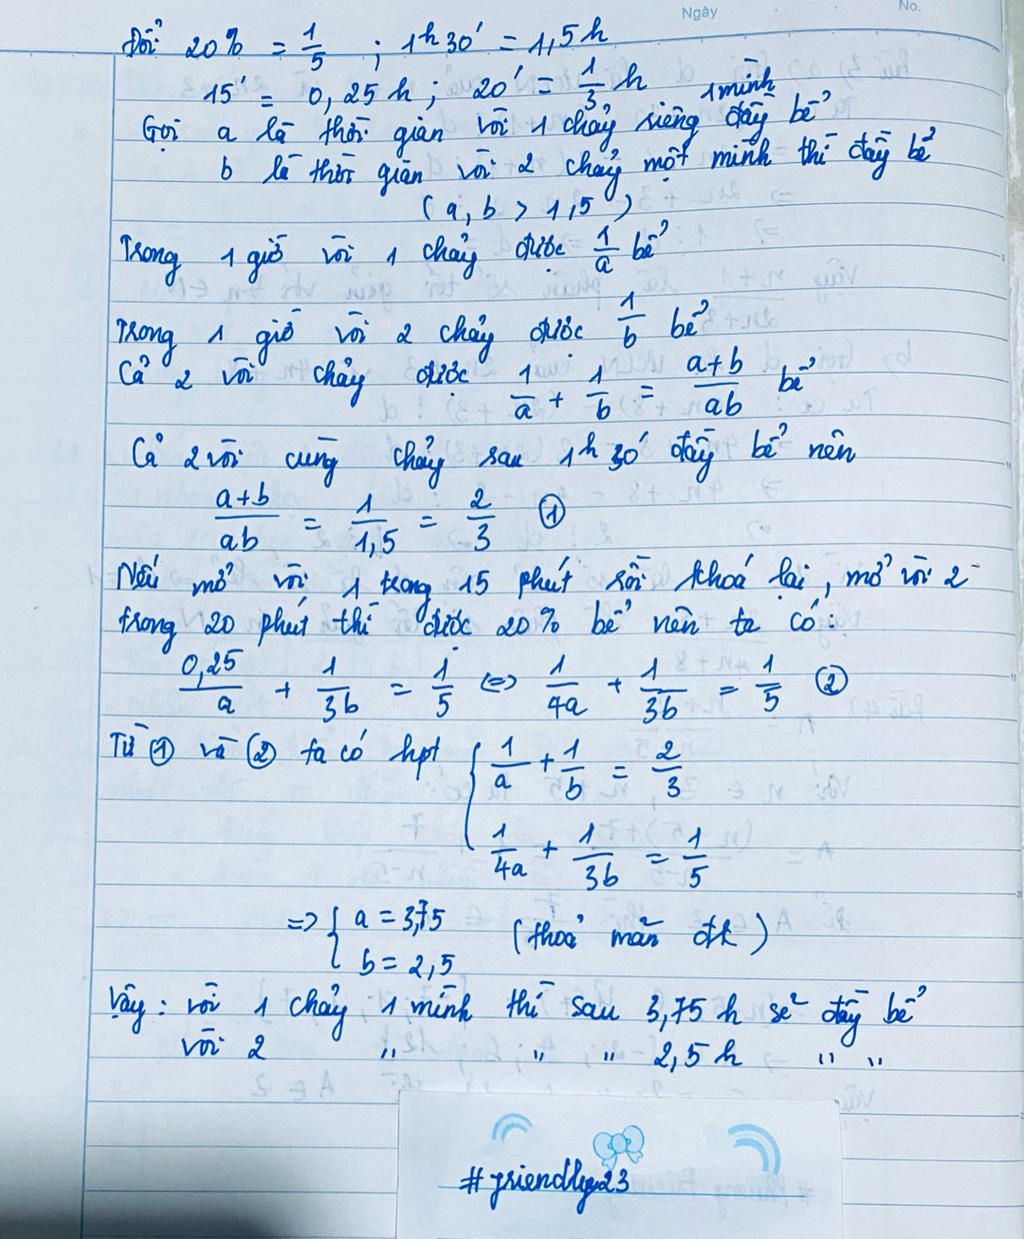 Ngày No.
Đổi 20% = 1/5 ; 1h 30' = 1,5h
15' = 0,25 h ; 20' = 1/3 h
1 mình
Gọi a là thời gian vòi 1 chảy riêng đầy bể
b là thời gian vòi 2 chảy một mình thì đầy bể
(a, b > 1,5)
Trong 1 giờ vòi 1 chảy được 1/a bể
Trong 1 giờ vòi 2 chảy được 1/b bể
Cả 2 vòi chảy được 1/a + 1/b = (a+b)/ab bể
Cả 2 vòi cùng chảy sau 1h 30' đầy bể nên
(a+b)/ab = 1/1,5 = 2/3 ①
Nếu mở vòi 1 trong 15 phút rồi khoá lại, mở vòi 2
trong 20 phút thì được 20% bể nên ta có:
0,25/a + 1/3b = 1/5 <=> 1/4a + 1/3b = 1/5 ②
Từ ① và ② ta có hpt { 1/a + 1/b = 2/3
1/4a + 1/3b = 1/5
=> { a = 3,75 (thoả mãn đk)
b = 2,5
Vậy : vòi 1 chảy 1 mình thì sau 3,75 h sẽ đầy bể
vòi 2 ,, ,, ,, 2,5 h ,, ,,
#friendly23